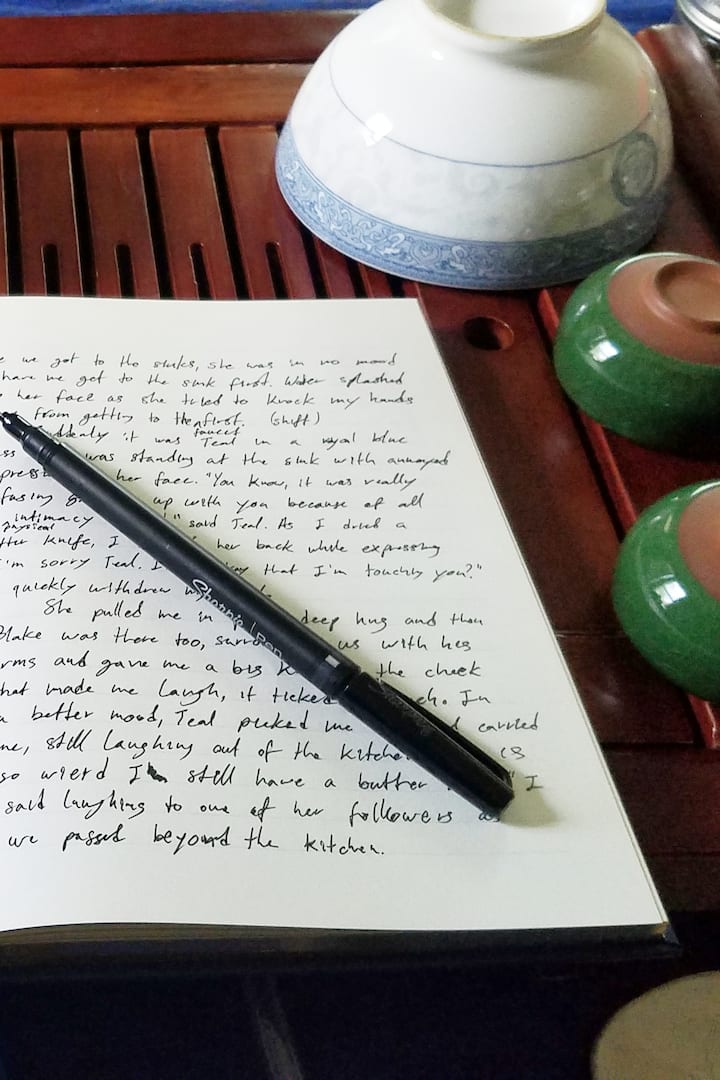 we got to the sinks, she was in no mood
have me get to the sink first. Water splashed
her face as she tried to knock my hands
from getting to the faucet first. (shift)
it was Teal in a royal blue
was standing at the sink with annoyed
her face. "You know, it was really
up with you because of all
physical intimacy said Teal. As I dried a
knife, I her back while expressing
I'm sorry Teal. that I'm touching you?"
quickly withdrew
She pulled me in deep hug and then
Blake was there too, us with his
arms and gave me a big the cheek
that made me laugh, it In
a better mood, Teal picked me carried
me, still laughing out of the is
so wierd I still have a butter I
said laughing to one of her followers as
we passed beyond the kitchen.
Sharpie Pen